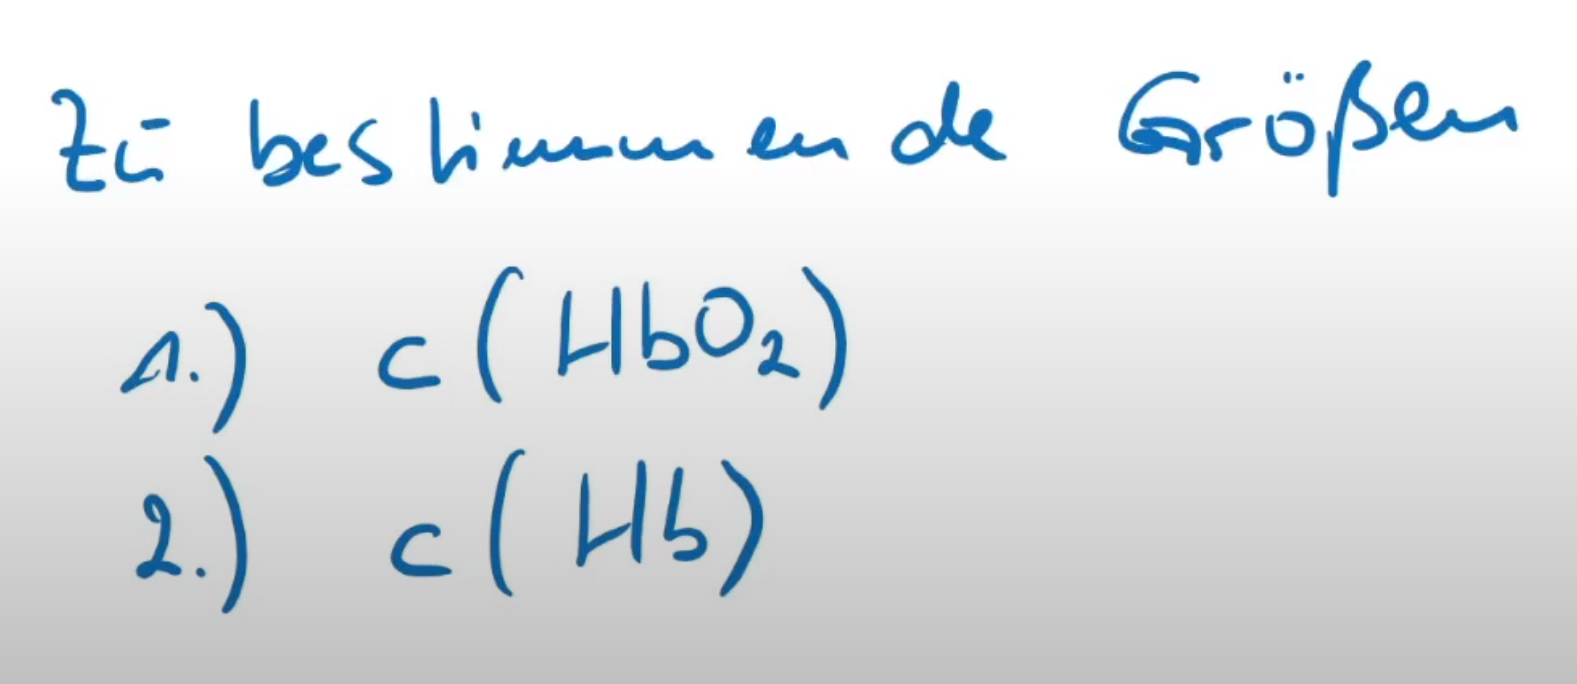 Zu bestimmende Größen
1.) c(HbO₂)
2.) c(Hb)